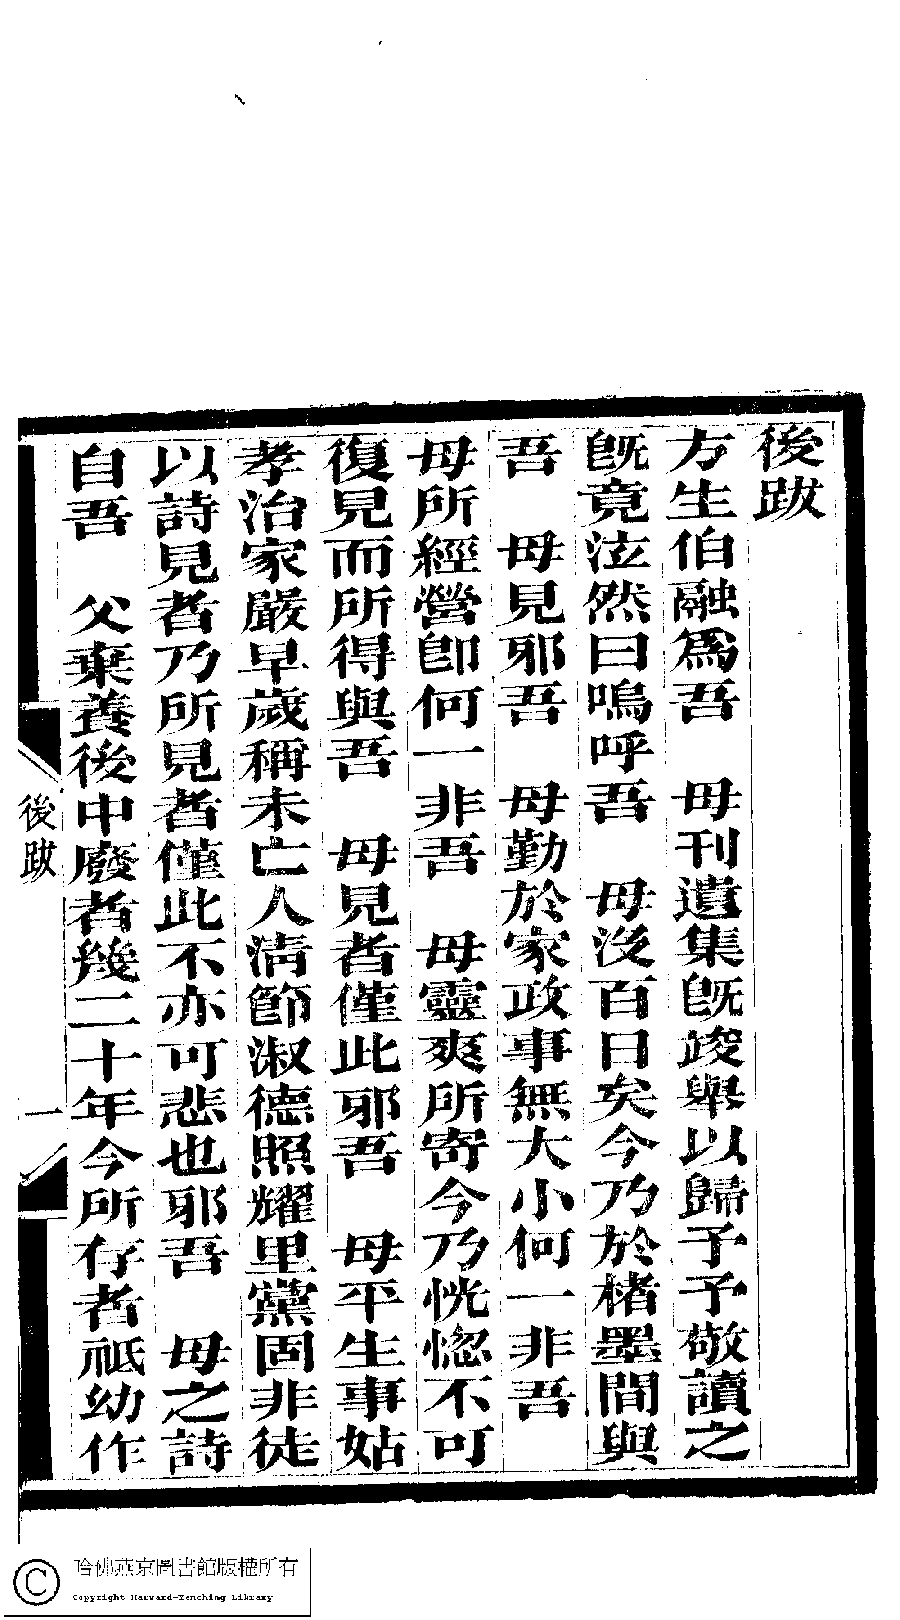 後跋
方生伯融為吾　母刊遺集旣竣舉以歸予予敬讀之
旣竟泣然曰嗚呼吾　母沒百日矣今乃於楮墨間與
吾　母見邪吾　母勤於家政事無大小何一非吾
母所經營卽何一非吾　母靈爽所寄今乃恍惚不可
復見而所得與吾　母見者僅此邪吾　母平生事姑
孝治家嚴早歲稱未亡人淸節淑德照耀里黨固非徒
以詩見者乃所見者僅此不亦可悲也邪吾　母之詩
自吾　父棄養後中廢者幾二十年今所存者祗幼作
後跋
一
哈佛燕京圖書館版權所有
Copyright Harvard-Yenching Library